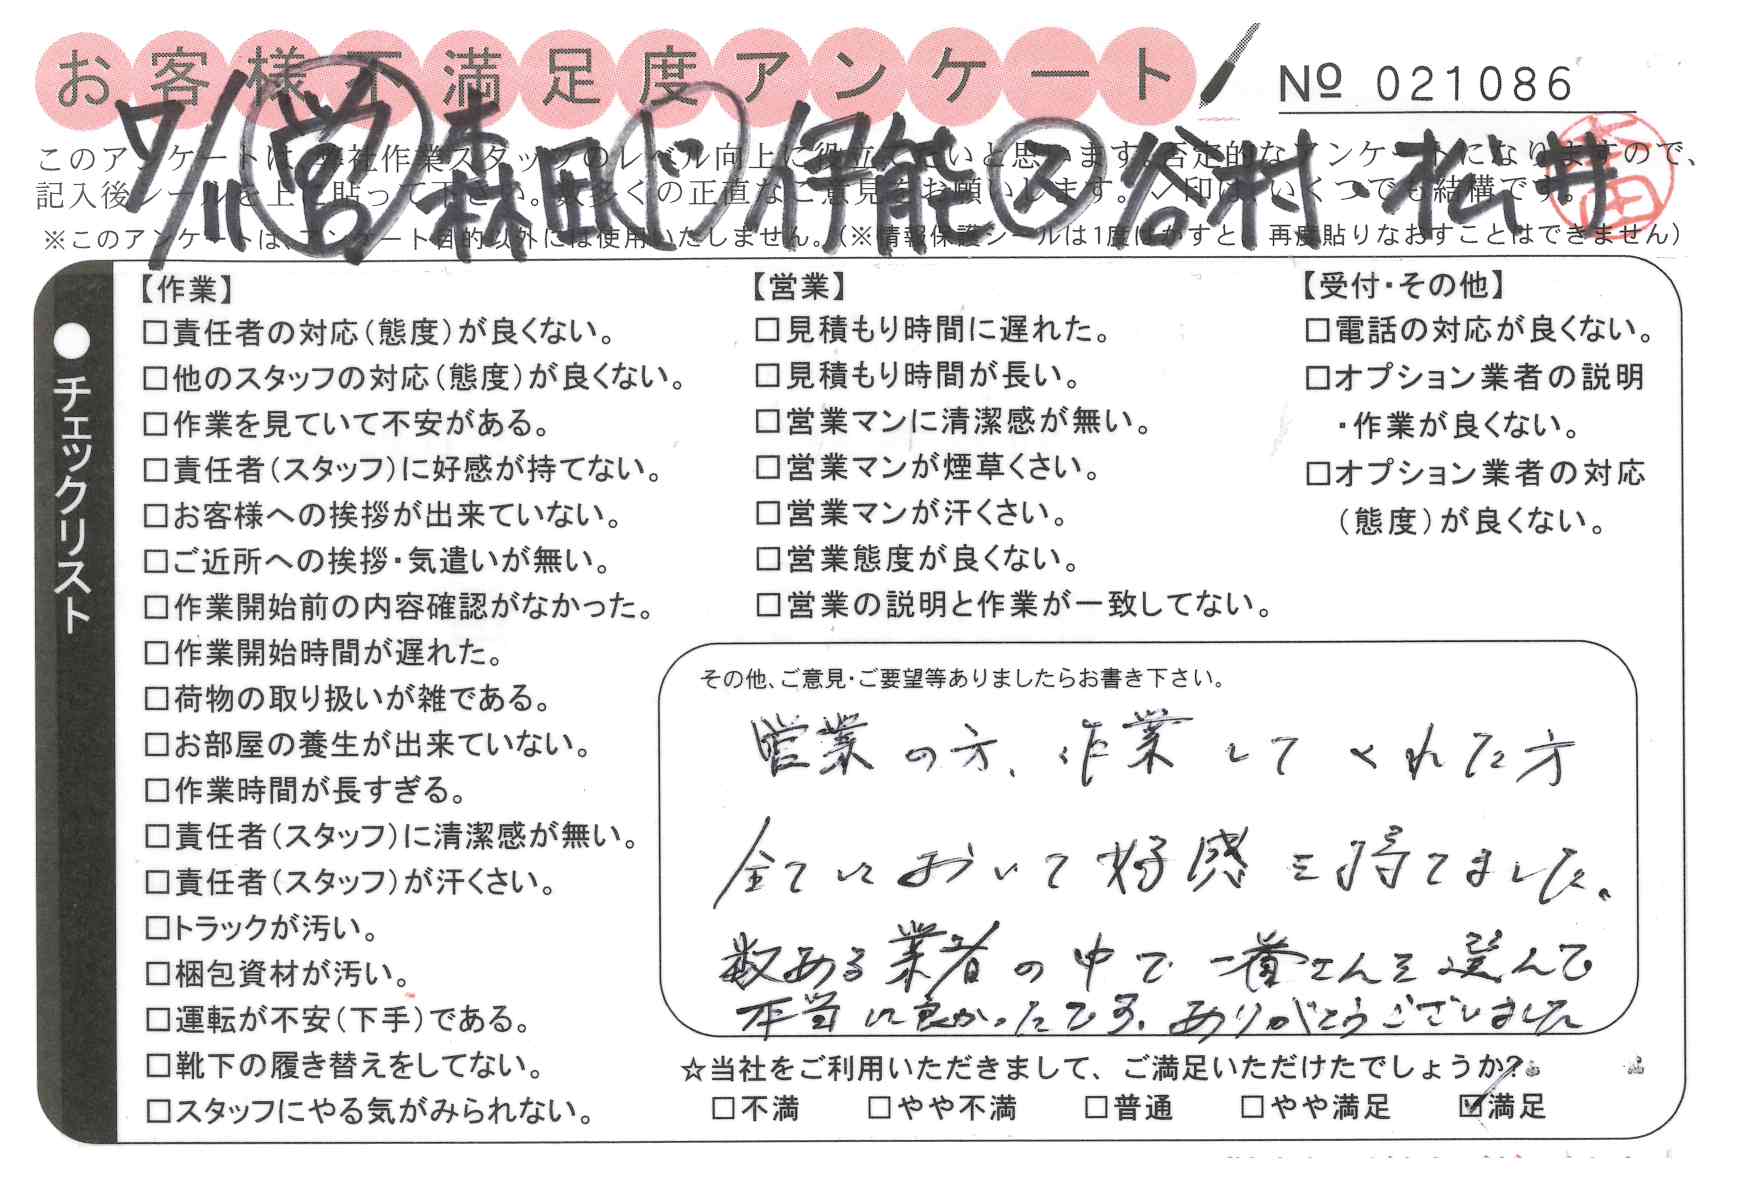 お客様不満足度アンケート
№ 021086
営 森田 ド 伊能 ス 谷村・松井
このアンケートは、弊社作業スタッフのレベル向上に役立てたいと思います。否定的なアンケートになりますので、
記入後シールを上に貼って下さい。数多くの正直なご意見をお願いします。✓印は、いくつでも結構です。
※このアンケートは、アンケート目的以外には使用いたしません。(※情報保護シールは1度はがすと、再度貼りなおすことはできません)
●チェックリスト
【作業】
□責任者の対応(態度)が良くない。
□他のスタッフの対応(態度)が良くない。
□作業を見ていて不安がある。
□責任者(スタッフ)に好感が持てない。
□お客様への挨拶が出来ていない。
□ご近所への挨拶・気遣いが無い。
□作業開始前の内容確認がなかった。
□作業開始時間が遅れた。
□荷物の取り扱いが雑である。
□お部屋の養生が出来ていない。
□作業時間が長すぎる。
□責任者(スタッフ)に清潔感が無い。
□責任者(スタッフ)が汗くさい。
□トラックが汚い。
□梱包資材が汚い。
□運転が不安(下手)である。
□靴下の履き替えをしてない。
□スタッフにやる気がみられない。
【営業】
□見積もり時間に遅れた。
□見積もり時間が長い。
□営業マンに清潔感が無い。
□営業マンが煙草くさい。
□営業マンが汗くさい。
□営業態度が良くない。
□営業の説明と作業が一致してない。
【受付・その他】
□電話の対応が良くない。
□オプション業者の説明
・作業が良くない。
□オプション業者の対応
(態度)が良くない。
その他、ご意見・ご要望等ありましたらお書き下さい。
営業の方、作業してくれた方
全てにおいて好感を持てました。
数ある業者の中で一番さんを選んで
本当に良かったです。ありがとうございました
☆当社をご利用いただきまして、ご満足いただけたでしょうか?
□不満 □やや不満 □普通 □やや満足 ☑満足